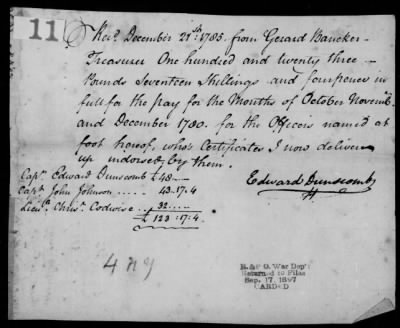 11
Rec^d. December 21^st: 1785. from Gerard Bancker
Treasurer One hundred and twenty three
Pounds Seventeen Shillings and fourpence in
full for the pay for the Months of October Novemb^r.
and December 1780. for the Officers named at
foot hereof, who's Certificates I now deliver
up indorsed by them.
Cap^t. Edward Dunscomb £48 —
Cap^t. John Johnson ..... 43.17.4
Lieu^t. Chris^r. Codwise .. 32 ....
£123:17:4.
Edward Dunscomb
4 NY
R. & P. O. War Dep't
Returned to Files
Sep. 17, 1897
CARDED